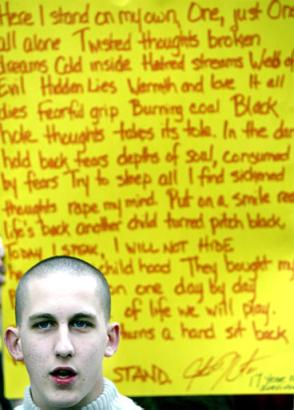 Here I stand on my own, One, just One
all alone Twisted thoughts broken
dreams Cold inside Hatred streams Web of
Evil Hidden Lies Vermith and love It all
dies Fearful grip Burning coal Black
hole thoughts takes its tole. In the dark
hold back fears depths of soal, consumed
by fears Try to sleep all I find sickened
thoughts rape my mind. Put on a smile
life's back another child turned pitch black,
TODAY I SPEAK, I WILL NOT HIDE
child hood They bought my
on one day by day
of life we will play.
a hand sit back
STAND.
17 YEAR